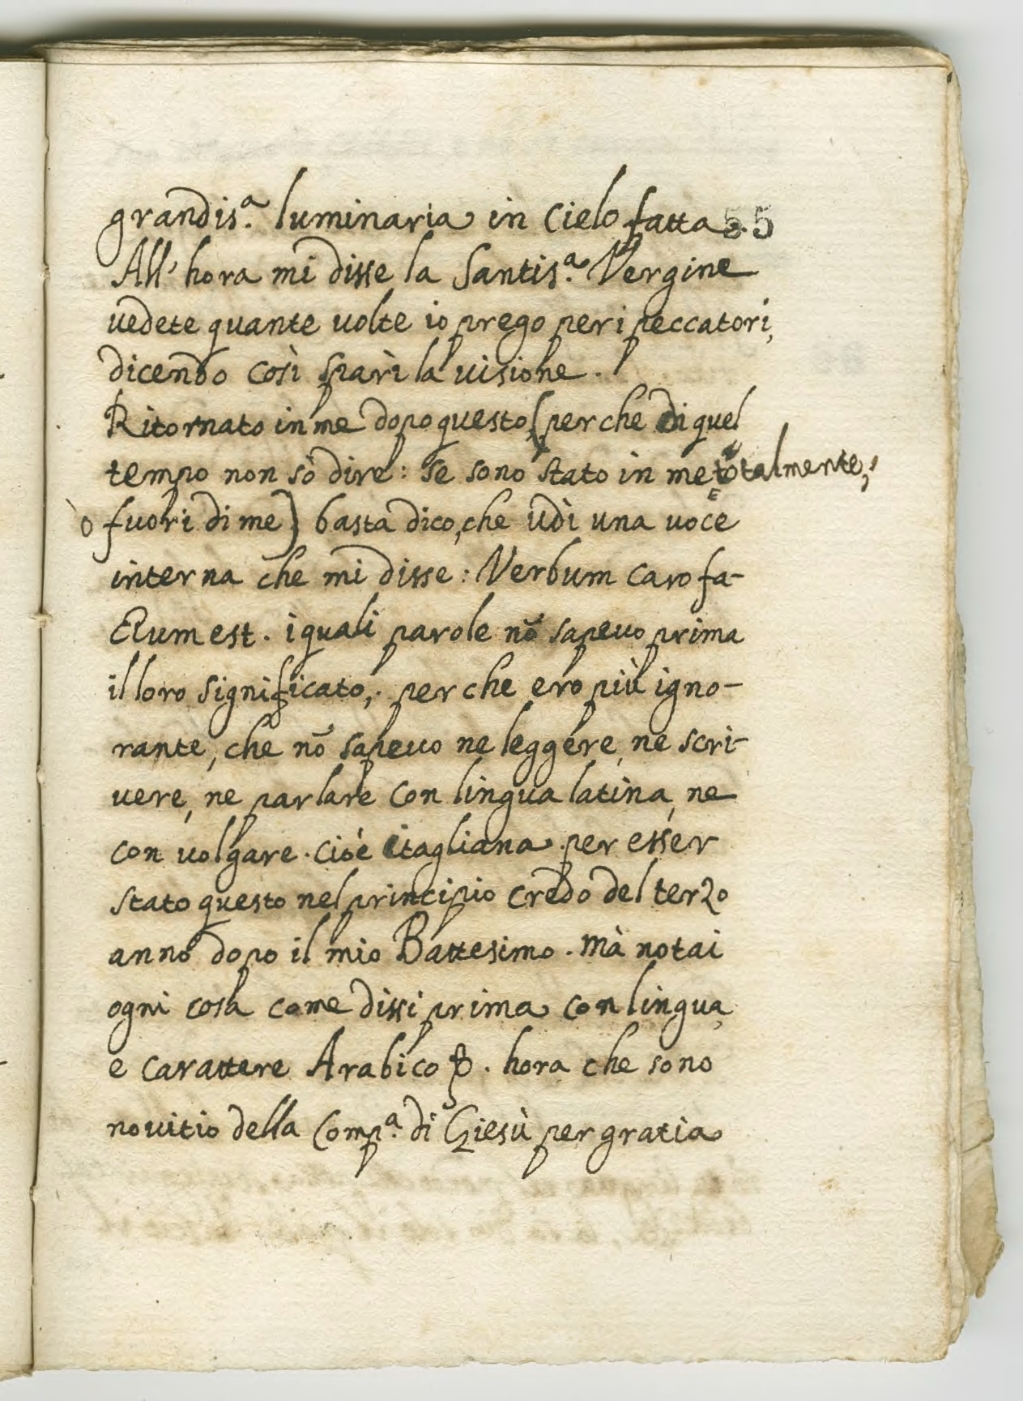 grandis.ª luminaria in Cielo fatta. 55
All'hora mi disse la Santis.ª Vergine
vedete quante volte io prego per i peccatori,
dicendo così sparì la visione.
Ritornato in me dopo questo (perche di quel
tempo non sò dire: se sono stato in me totalmente,
ò fuori di me) basta dico, che udì una voce
interna che mi disse: Verbum caro fa-
ctum est. i quali parole nō sapevo prima
il loro significato, perche ero più igno-
rante, che nō sapevo ne leggere, ne scri-
vere, ne parlare con lingua latina, ne
con volgare. cioè itagliana. per esser
stato questo nel principio credo del terzo
anno dopo il mio Battesimo. mà notai
ogni cosa come dissi prima con lingua,
e carattere Arabico. hora che sono
novitio della Comp.ª di Giesù per gratia